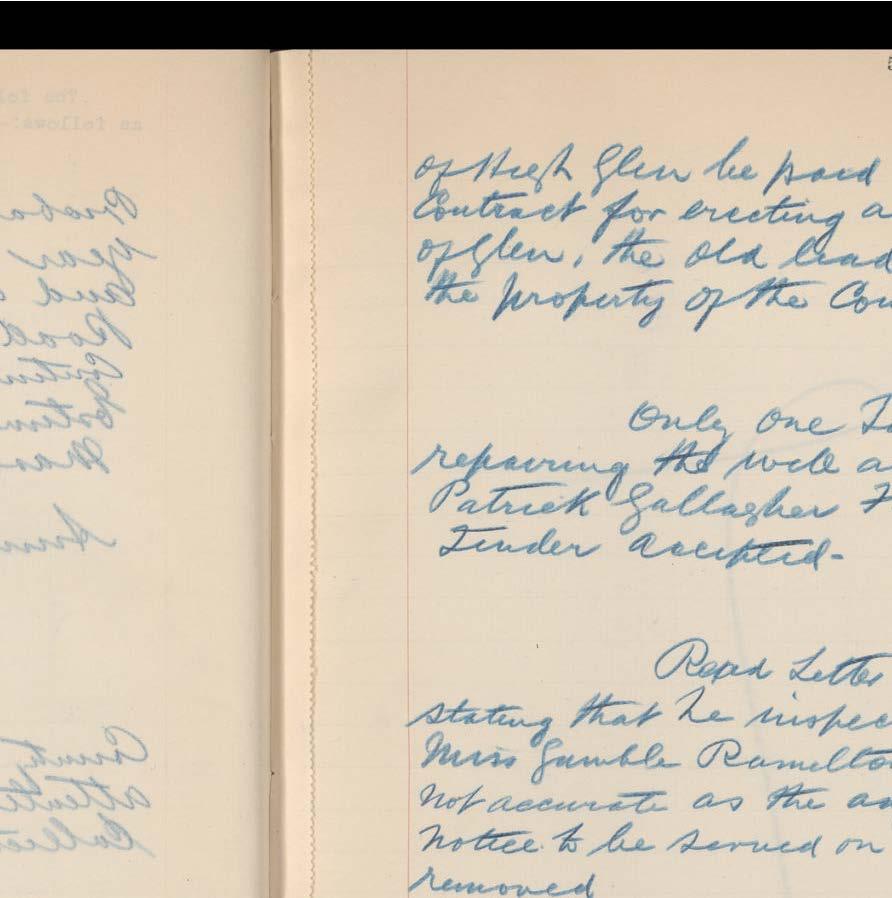 of High Glen be paid
Contract for erecting a
of Glen, the old lead
the property of the Cou
Only one Te
repairing the well a
Patrick Gallagher F
Tender accepted-
Read Letter
stating that he inspec
Miss Gamble Ramelto
not accurate as the as
notice to be served on
removed